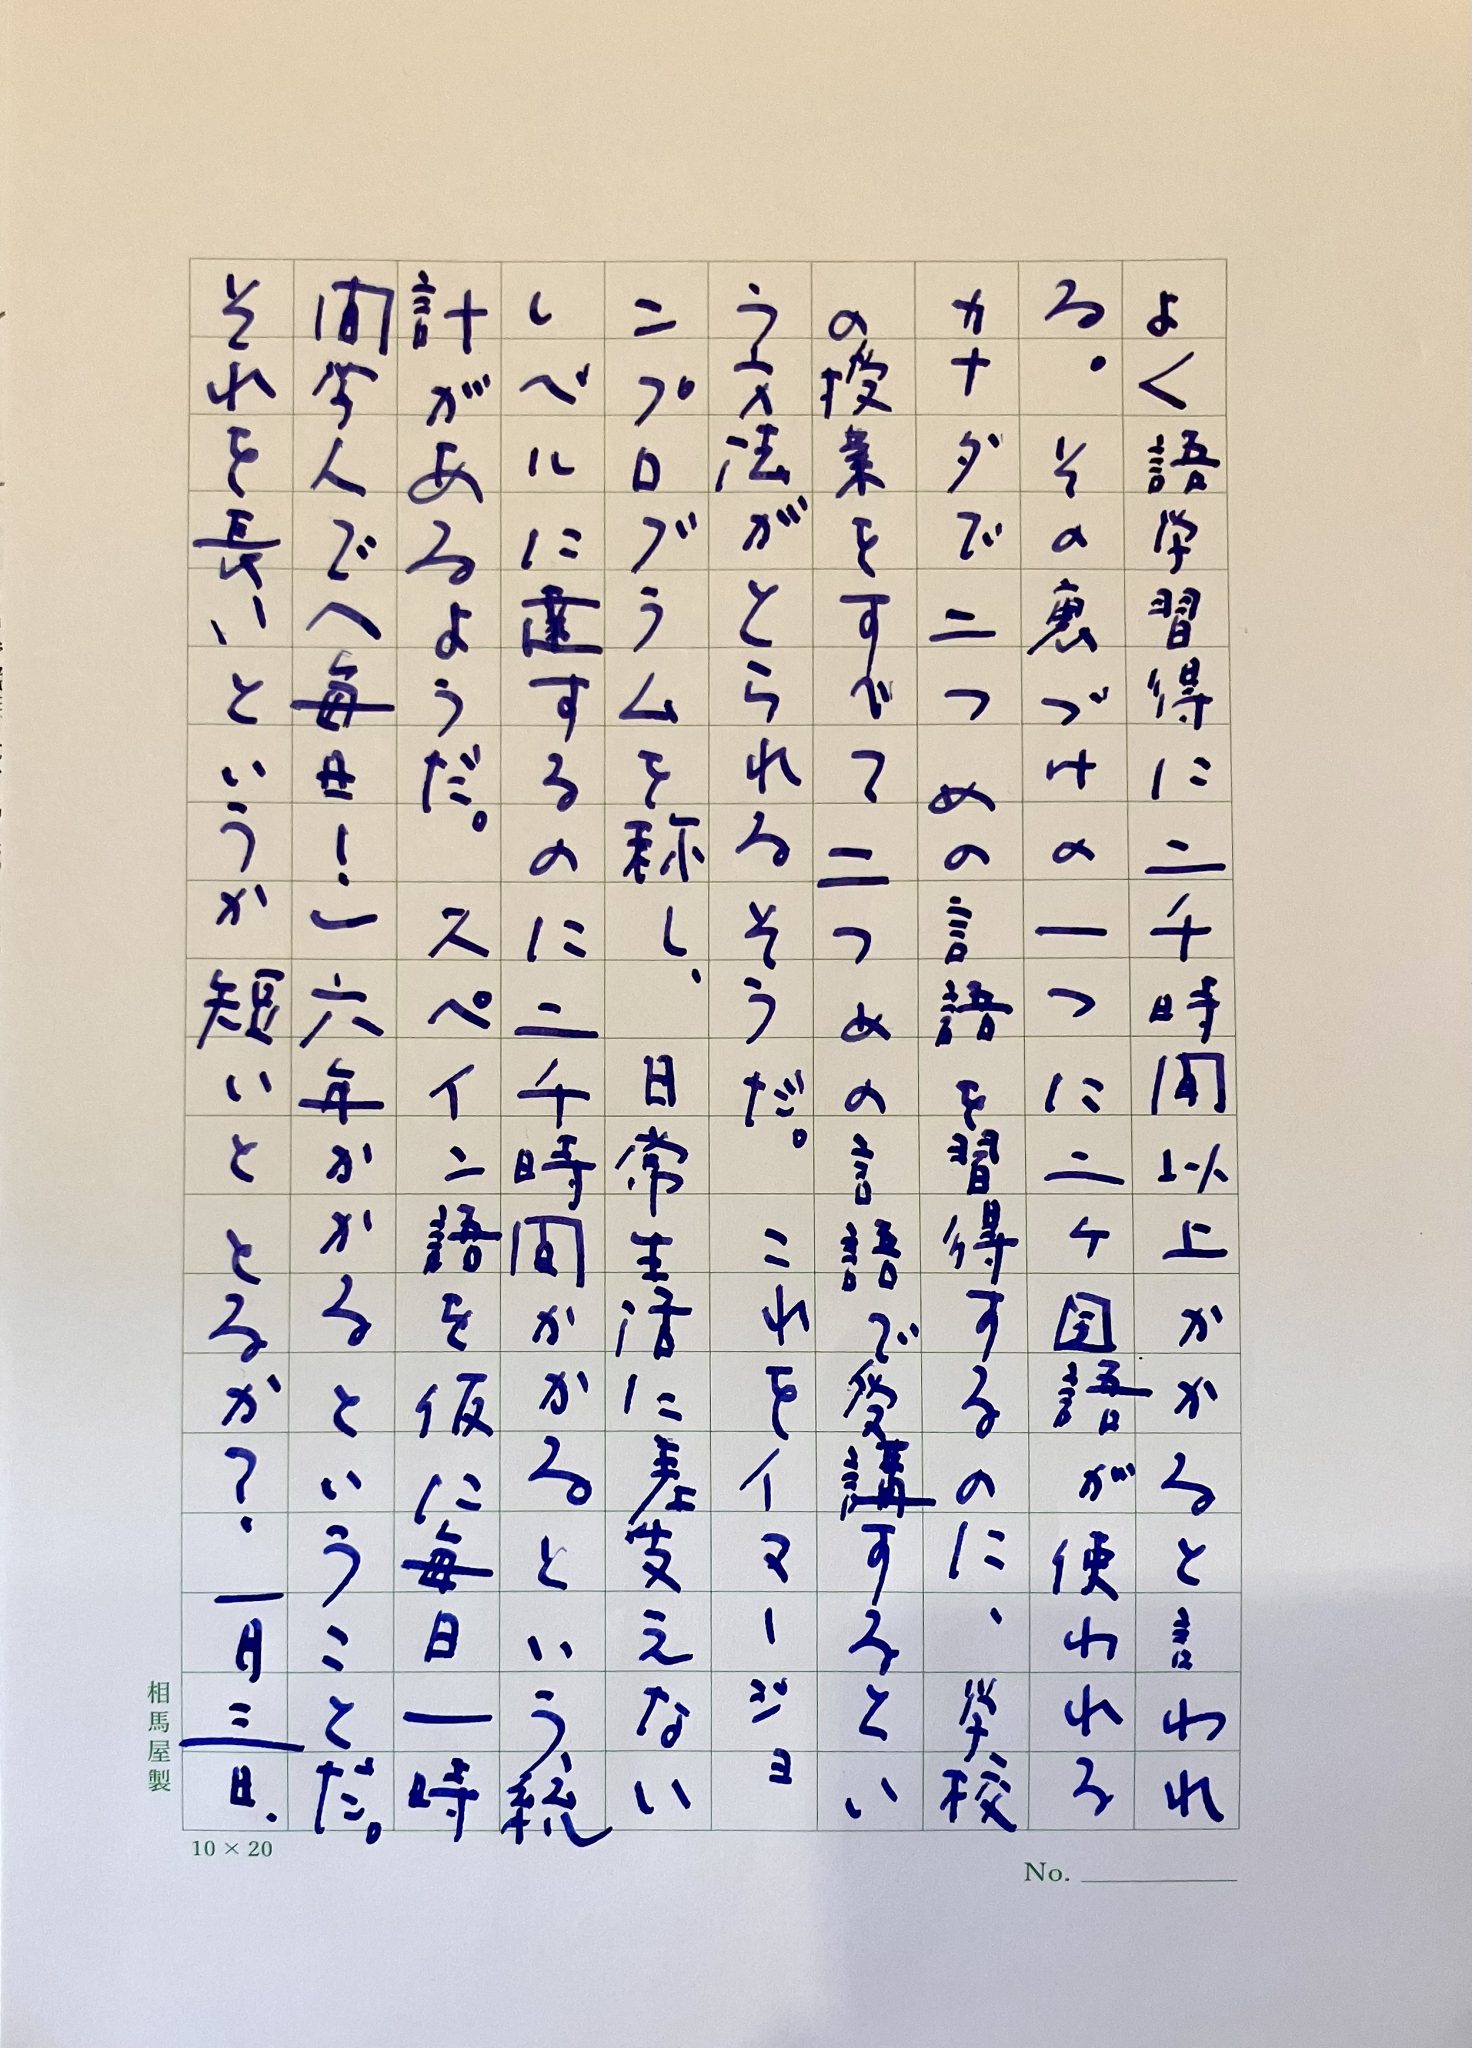 よく語学習得に二千時間以上かかると言われ
る。その裏づけの一つに二ケ国語が使われる
カナダで二つめの言語を習得するのに、学校
の授業をすべて二つめの言語で受講するとい
う方法がとられるそうだ。これをイマージョ
ンプログラムを称し、日常生活に差支えない
レベルに達するのに二千時間かかるという、統
計があるようだ。スペイン語を仮に毎日一時
間学んでへ毎日!)六年かかるということだ。
それを長いというか短いととるか?一月三日.
相馬屋製
10×20
No.